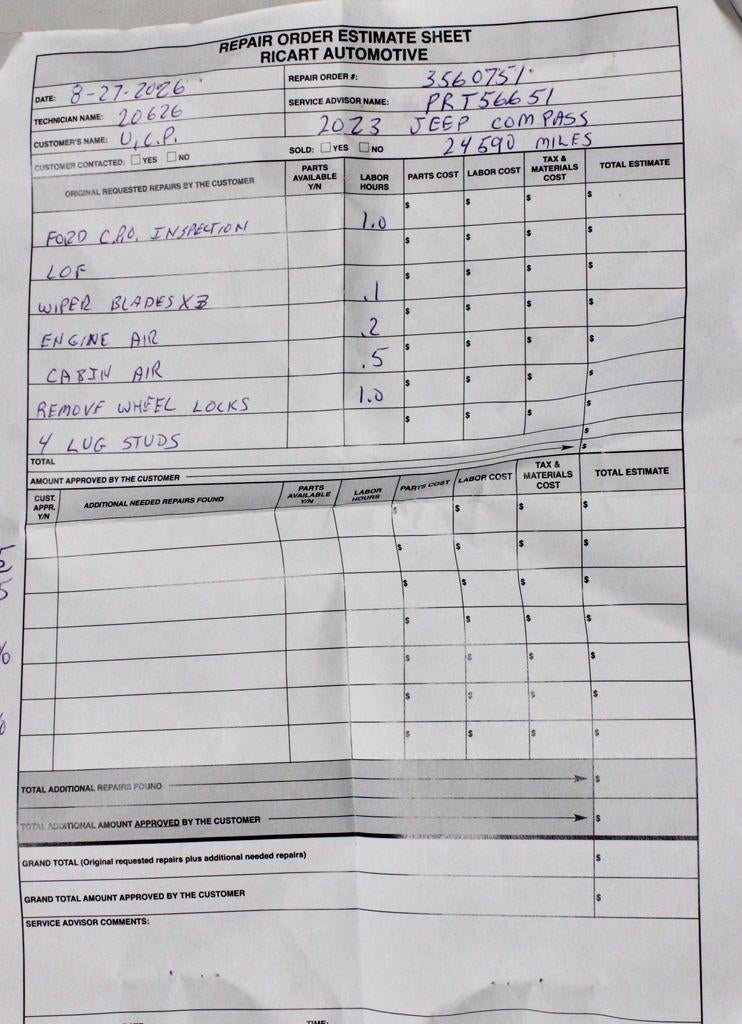 REPAIR ORDER ESTIMATE SHEET
RICART AUTOMOTIVE
DATE: 8-27-2026
REPAIR ORDER #: 3560751
TECHNICIAN NAME: 20626
SERVICE ADVISOR NAME: PRT56651
CUSTOMER'S NAME: U.C.P.
2023 JEEP COMPASS
CUSTOMER CONTACTED: YES NO
SOLD: YES NO
24590 MILES
ORIGINAL REQUESTED REPAIRS BY THE CUSTOMER PARTS AVAILABLE Y/N LABOR HOURS PARTS COST LABOR COST TAX & MATERIALS COST TOTAL ESTIMATE
$ $ $ $
FORD C.P.O. INSPECTION 1.0 $ $ $ $
LOF $ $ $ $
WIPER BLADES X3 .1 $ $ $ $
ENGINE AIR .2 $ $ $ $
CABIN AIR .5 $ $ $ $
REMOVE WHEEL LOCKS 1.0 $ $ $ $
4 LUG STUDS $
TOTAL $
AMOUNT APPROVED BY THE CUSTOMER
CUST. APPR. Y/N ADDITIONAL NEEDED REPAIRS FOUND PARTS AVAILABLE Y/N LABOR HOURS PARTS COST LABOR COST TAX & MATERIALS COST TOTAL ESTIMATE
$ $ $ $
$ $ $ $
$ $ $ $
$ $ $ $
$ $ $ $
$ $ $ $
$ $ $ $
TOTAL ADDITIONAL REPAIRS FOUND $
TOTAL ADDITIONAL AMOUNT APPROVED BY THE CUSTOMER $
GRAND TOTAL (Original requested repairs plus additional needed repairs) $
GRAND TOTAL AMOUNT APPROVED BY THE CUSTOMER $
SERVICE ADVISOR COMMENTS:
DATE TIME: